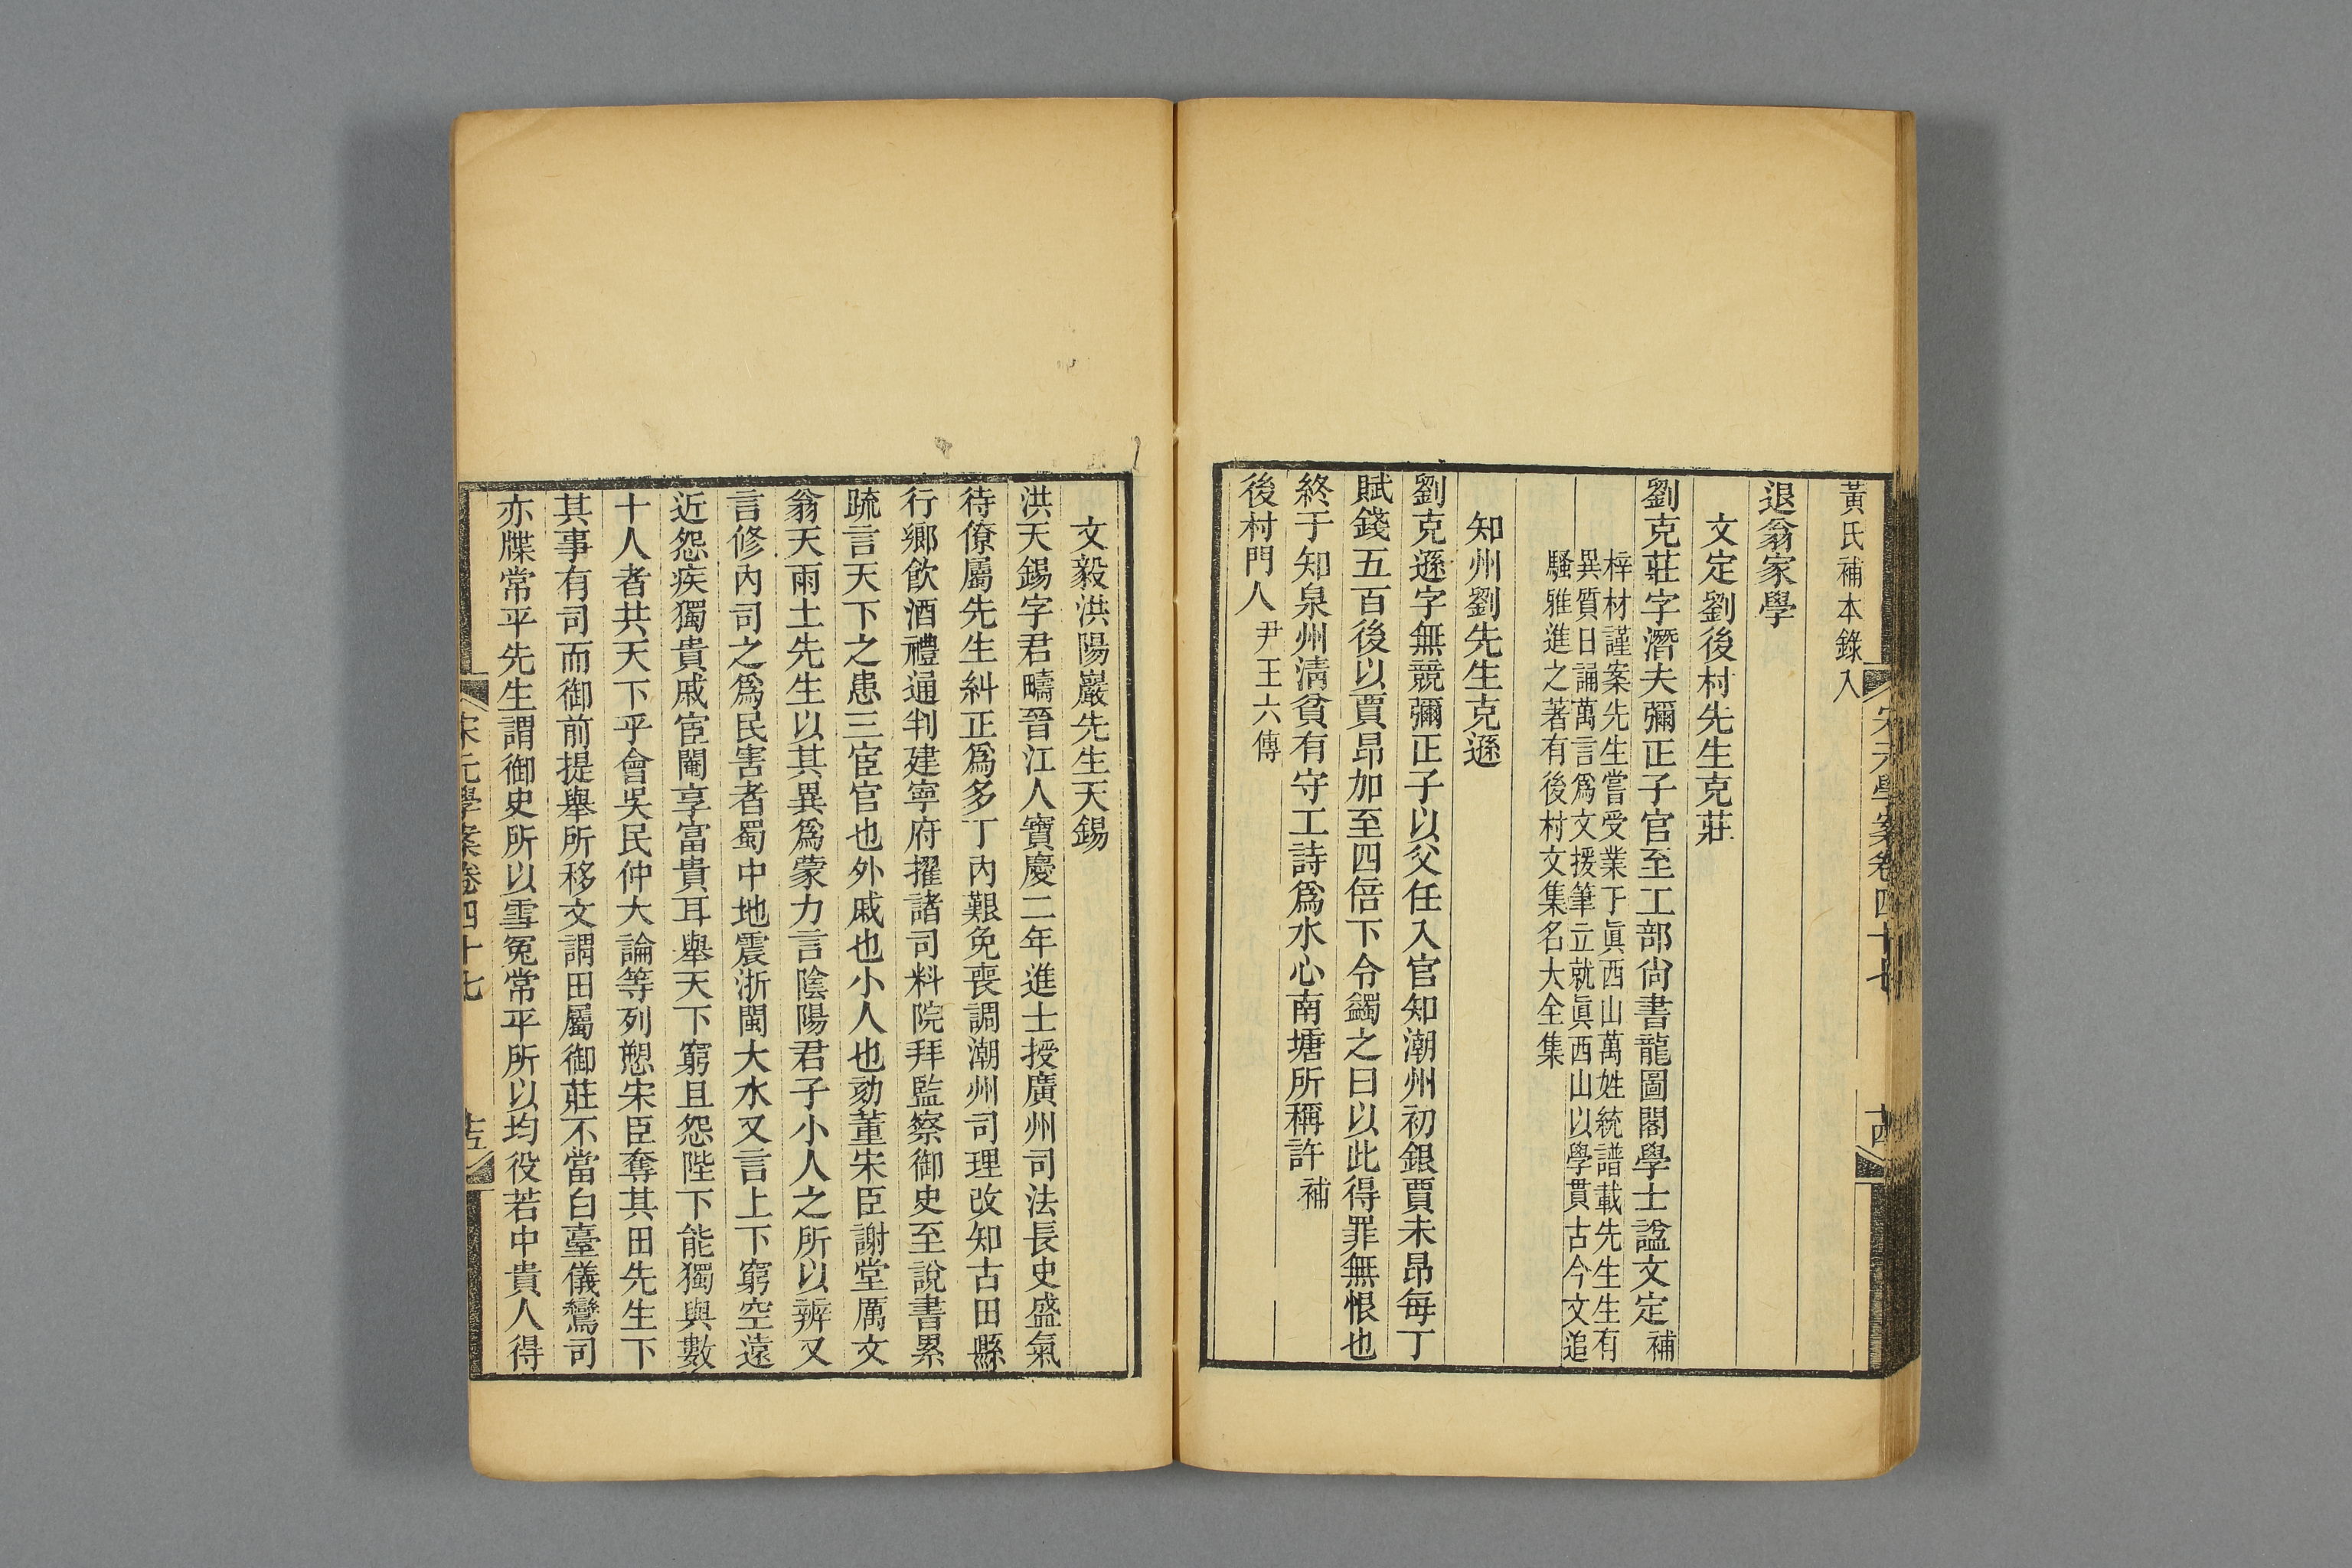 宋元學案卷四十七
十四
黃氏補本錄入
退翁家學
文定劉後村先生克莊
劉克莊字潛夫彌正子官至工部尙書龍圖閣學士諡文定補
梓材謹案先生嘗受業于眞西山萬姓統譜載先生生有
異質日誦萬言爲文援筆立就眞西山以學貫古今文追
騷雅進之著有後村文集名大全集
知州劉先生克遜
劉克遜字無競彌正子以父任入官知潮州初銀賈未昂每丁
賦錢五百後以賈昂加至四倍下令蠲之曰以此得罪無恨也
終于知泉州淸貧有守工詩爲水心南塘所稱許補
後村門人尹王六傳
文毅洪陽巖先生天錫
洪天錫字君疇晉江人寶慶二年進士授廣州司法長史盛氣
待僚屬先生糾正爲多丁內艱免喪調潮州司理改知古田縣
行鄉飮酒禮通判建寧府擢諸司料院拜監察御史至說書累
疏言天下之患三宦官也外戚也小人也劾董宋臣謝堂厲文
翁天雨土先生以其異爲蒙力言陰陽君子小人之所以辨又
言修內司之爲民害者蜀中地震浙閩大水又言上下窮空遠
近怨疾獨貴戚宦閹享富貴耳舉天下窮且怨陛下能獨與數
十人者共天下乎會吳民仲大論等列愬宋臣奪其田先生下
其事有司而御前提舉所移文謂田屬御莊不當白臺儀鸞司
亦牒常平先生謂御史所以雪冤常平所以均役若中貴人得
宋元學案卷四十七
十五